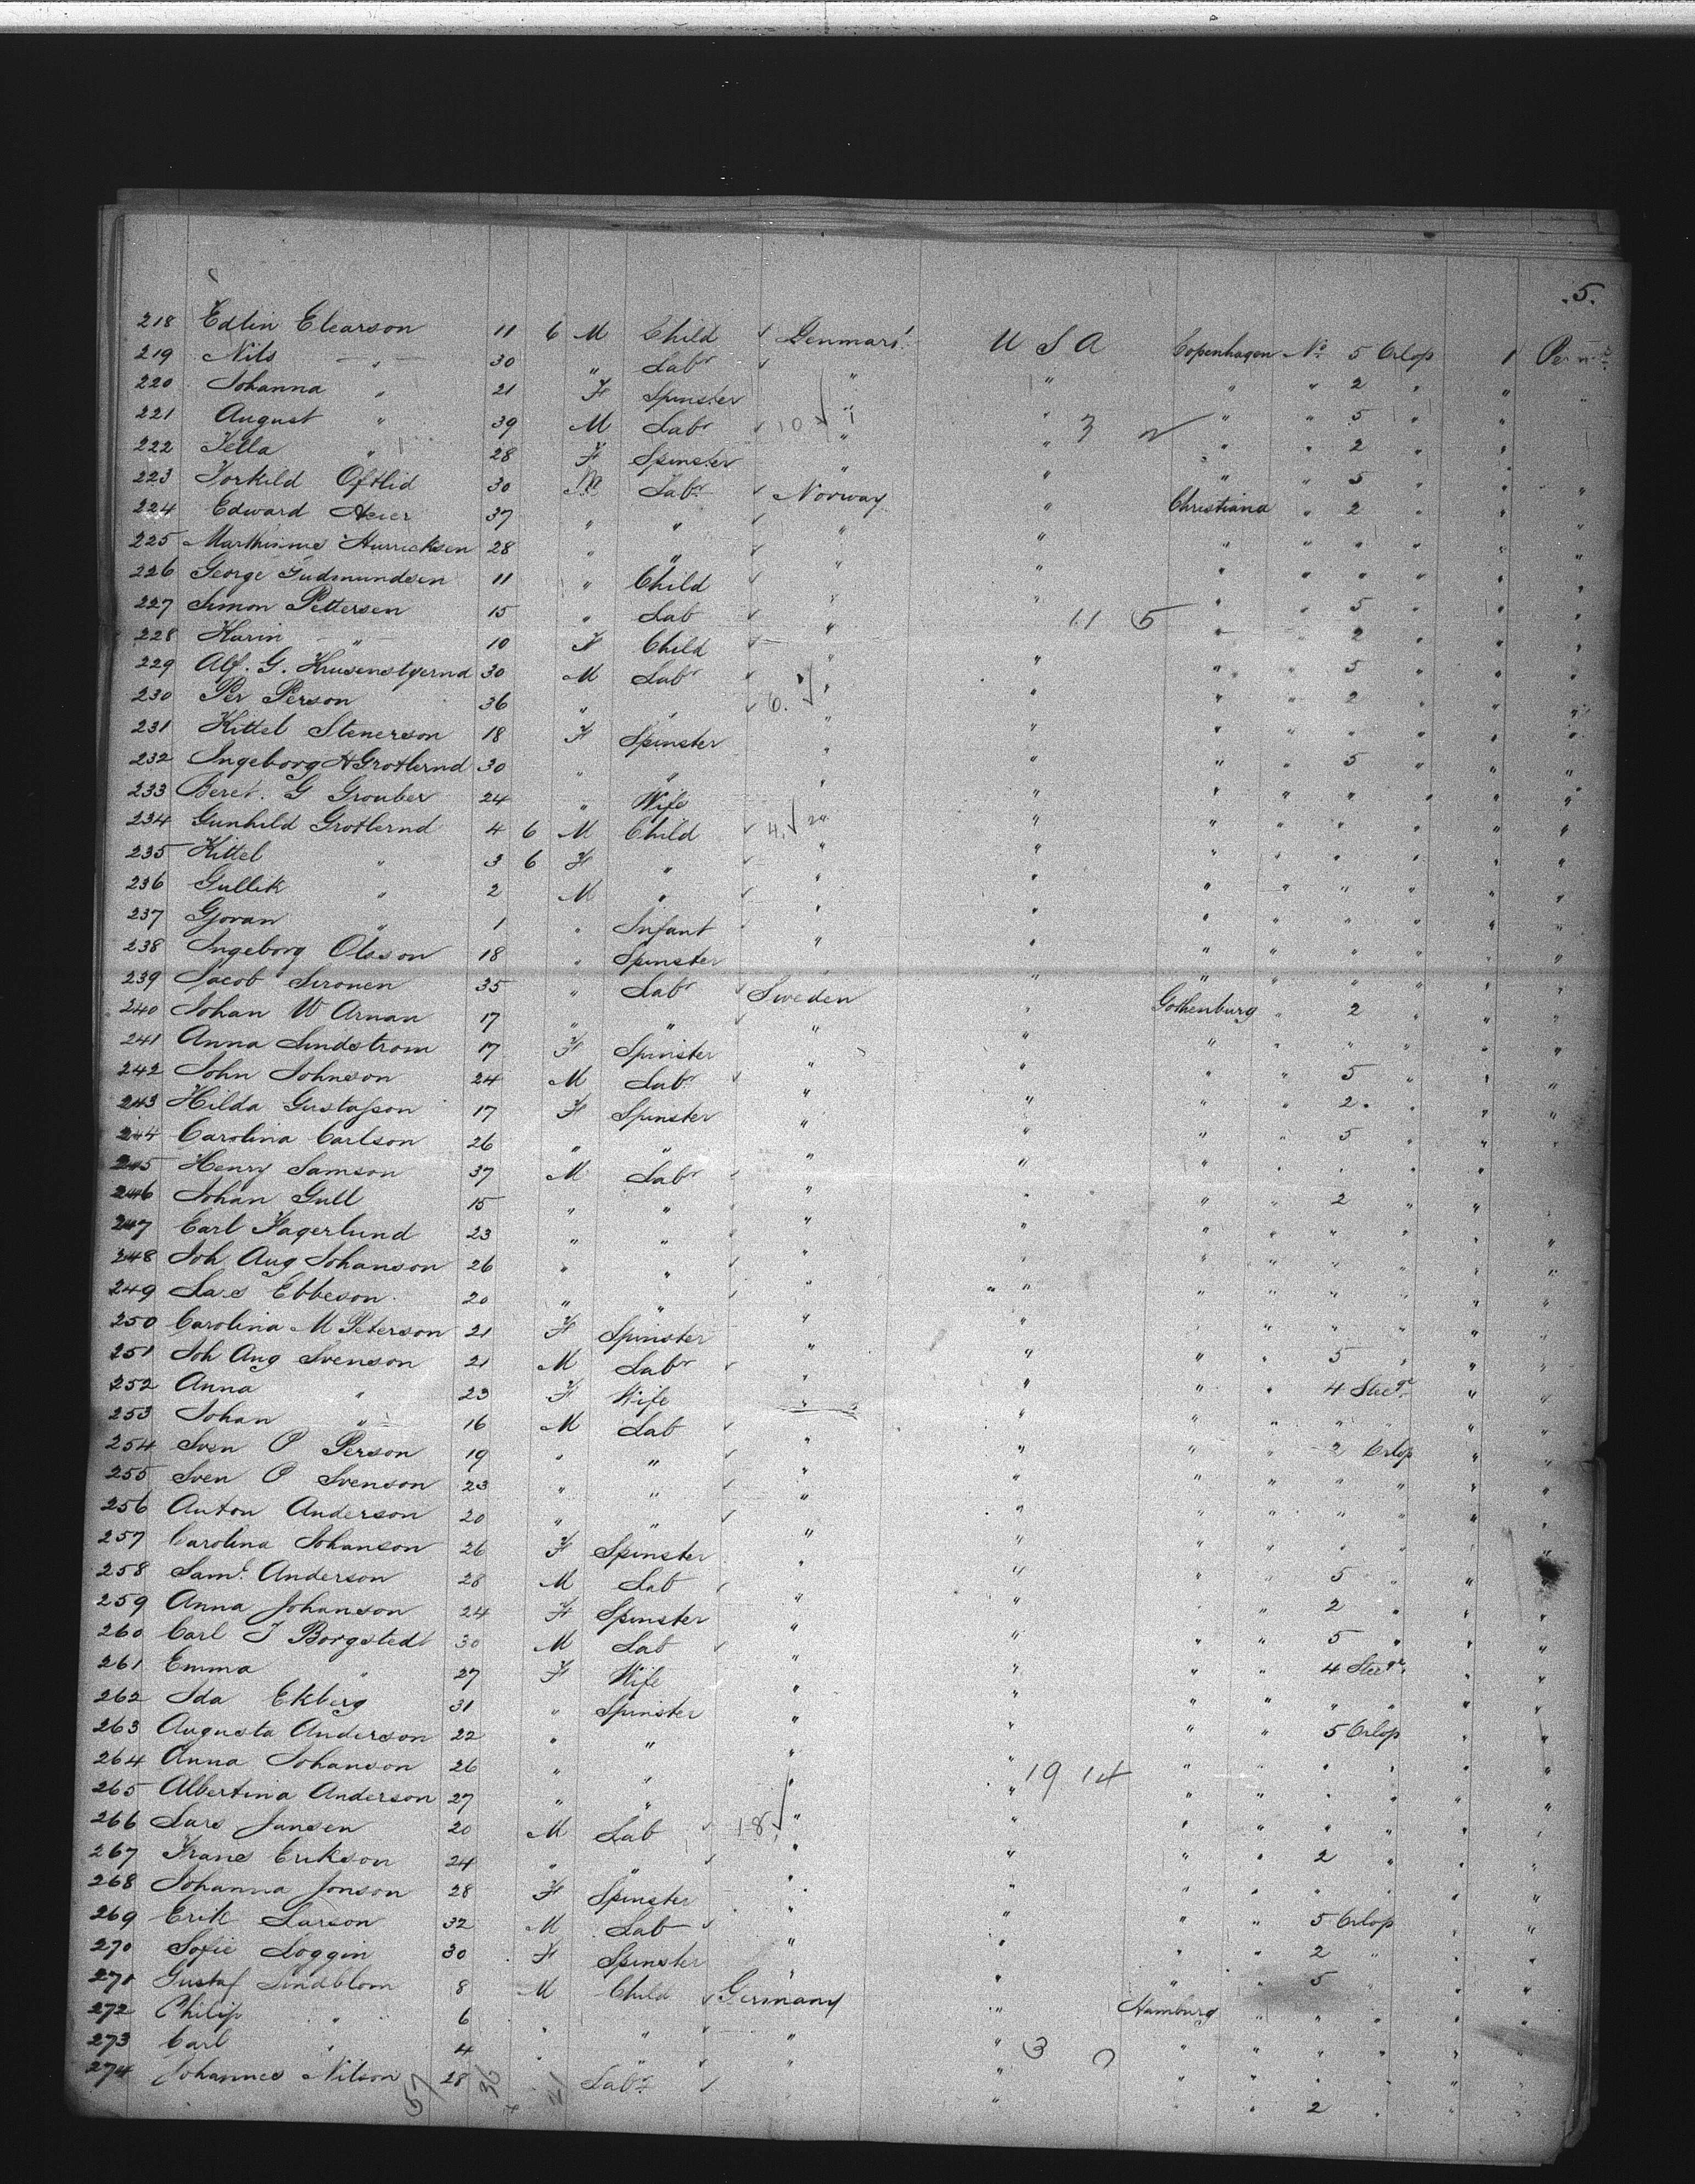 .5.
218 Edlin Elearson 11 6 M Child ✓ Denmark U S A Copenhagen No 5 Orlop 1
219 Nils " 30 " Labr ✓ " " " " 2 " "
220 Johanna " 21 F Spinster " " " " 5 " "
221 August " 39 M Labr ✓ 10 " " 3 " " 2 " "
222 Kella " 28 F Spinster " " " " 5 " "
223 Torkild Oftlid 30 M Labr ✓ Norway " Christiana " 2 " "
224 Edward 37 " " ✓ " " " " " " "
225 28 " " ✓ " " " " " " "
226 George Gudmundsen 11 " Child ✓ " " " 5 " "
227 Simon Pettersen 15 " Lab ✓ " 11 5 " " 2 " "
228 Karin " 10 F Child ✓ " " " " 5 " "
229 Alf. G. Krusenstjernd 30 M Labr ✓ " " " " 2 " "
230 Per Person 36 " " ✓ 6. " " " " " " "
231 Kittel Stenerson 18 F Spinster " " " " 5 " "
232 Ingeborg H Grotlernd 30 " " " " " " " " "
233 Beret. G Grouber 24 " Wife " " " " " " "
234 Gunhild Grotlernd 4 6 M Child ✓ 4. " " " " " " "
235 Kittel " 3 6 F " ✓ " " " " " " "
236 Gullik " 2 M " ✓ " " " " " " "
237 Gjoran " 1 " Infant ✓ " " " " " " "
238 Ingeborg Olsson 18 " Spinster " " " " " " "
239 Jacob Sironen 35 " Labr ✓ Sweden " Gothenburg " 2 " "
240 Johan W Arnan 17 " " ✓ " " " " " " "
241 Anna Lindstrom 17 F Spinster " " " " 5 " "
242 John Johnson 24 M Labr ✓ " " " " 2 " "
243 Hilda Gustafson 17 F Spinster " " " " 5 " "
244 Carolina Carlson 26 " " " " " " " " "
245 Henry Samson 37 M Labr ✓ " " " " 2 " "
246 Johan Gull 15 " " ✓ " " " " " " "
247 Carl Fagerlund 23 " " ✓ " " " " " " "
248 Joh Aug Johanson 26 " " ✓ " " " " " " "
249 Lars Ebbeson 20 " " ✓ " " " " " " "
250 Carolina M Peterson 21 F Spinster " " " " 5 " "
251 Joh Aug Svenson 21 M Labr ✓ " " " " 4 Steege "
252 Anna " 23 F Wife " " " " " " "
253 Johan " 16 M Lab ✓ " " " " 2 Orlop "
254 Sven P Person 19 " " ✓ " " " " " " "
255 Sven P Svenson 23 " " ✓ " " " " " " "
256 Anton Anderson 20 " " ✓ " " " " " " "
257 Carolina Johanson 26 F Spinster " " " " 5 " "
258 Saml. Anderson 28 M Lab ✓ " " " " 2 " "
259 Anna Johanson 24 F Spinster " " " " 5 " "
260 Carl J Borgstedt 30 M Lab ✓ " " " " 4 Steege "
261 Emma " 27 F Wife " " " " " " "
262 Ida Ekberg 31 " Spinster " " " " 5 Orlop "
263 Augusta Anderson 22 " " " " " " " " "
264 Anna Johanson 26 " " " " 19 14 " " " " "
265 Albertina Anderson 27 " " " " " " " " "
266 Lars Jansen 20 M Lab ✓ 18 " " " " 2 " "
267 Frans Erikson 24 " " ✓ " " " " " " "
268 Johanna Jonson 28 F Spinster " " " " 5 Orlop "
269 Erik Larson 32 M Lab ✓ " " " " 2 " "
270 Sofie Loggin 30 F Spinster " " " " 5 " "
271 Gustaf Lindblom 8 M Child ✓ Germany " Hamburg " " " "
272 Philip " 6 " " ✓ " " " " " " "
273 Carl " 4 " " ✓ " 3 0 " " " " "
274 Johannes Nilson 28 Labr ✓ " " " 2 " "
57 36 21